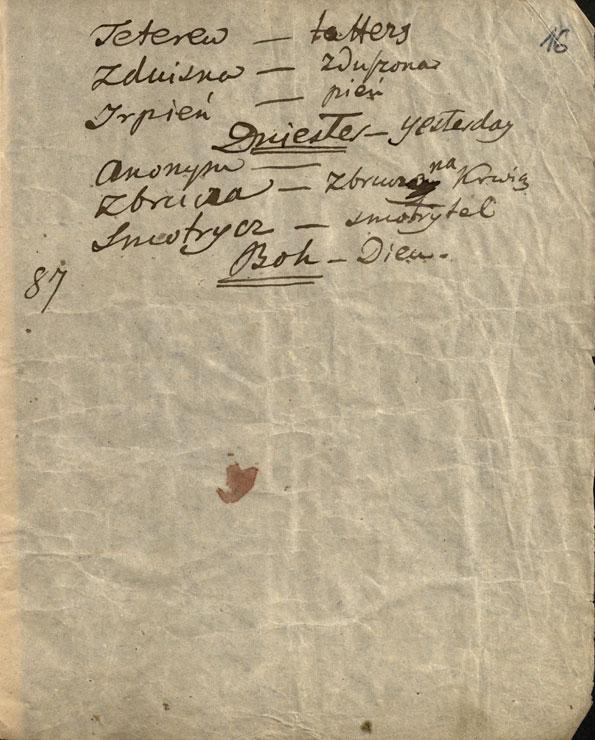 16
Teterew — tatters
Zduisna — zduszona
Irpień — pień
Dniester – yesterday
Anonym —
Zbrucza — zbruczony na Krwią
Smotrycz — smotrytel
Boh – Dieu.
87